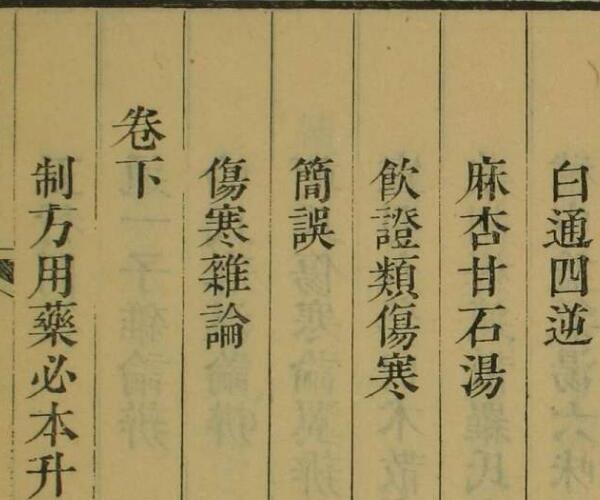 白通四逆
麻杏甘石湯
飲證類傷寒
簡誤
傷寒雜論
卷下
制方用藥必本升